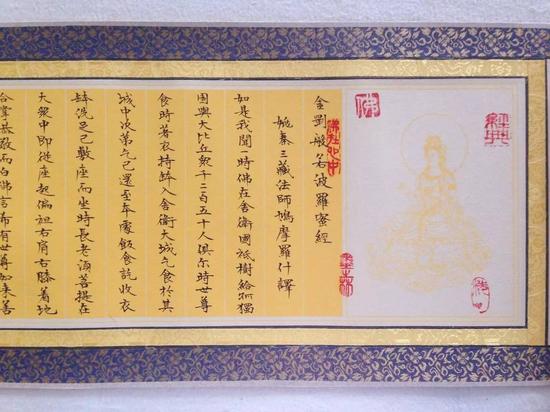 佛
佛在心中
金剛般若波羅蜜經
姚秦三藏法師鳩摩羅什譯
如是我聞一時佛在舍衛國祇樹給孤獨
園與大比丘眾千二百五十人俱尔時世尊
食時著衣持鉢入舍衛大城乞食於其
城中次第乞已還至本處飯食訖收衣
鉢洗足已敷座而坐時長老須菩提在
大眾中即從座起偏袒右肩右膝著地
合掌恭敬而白佛言希有世尊如來善